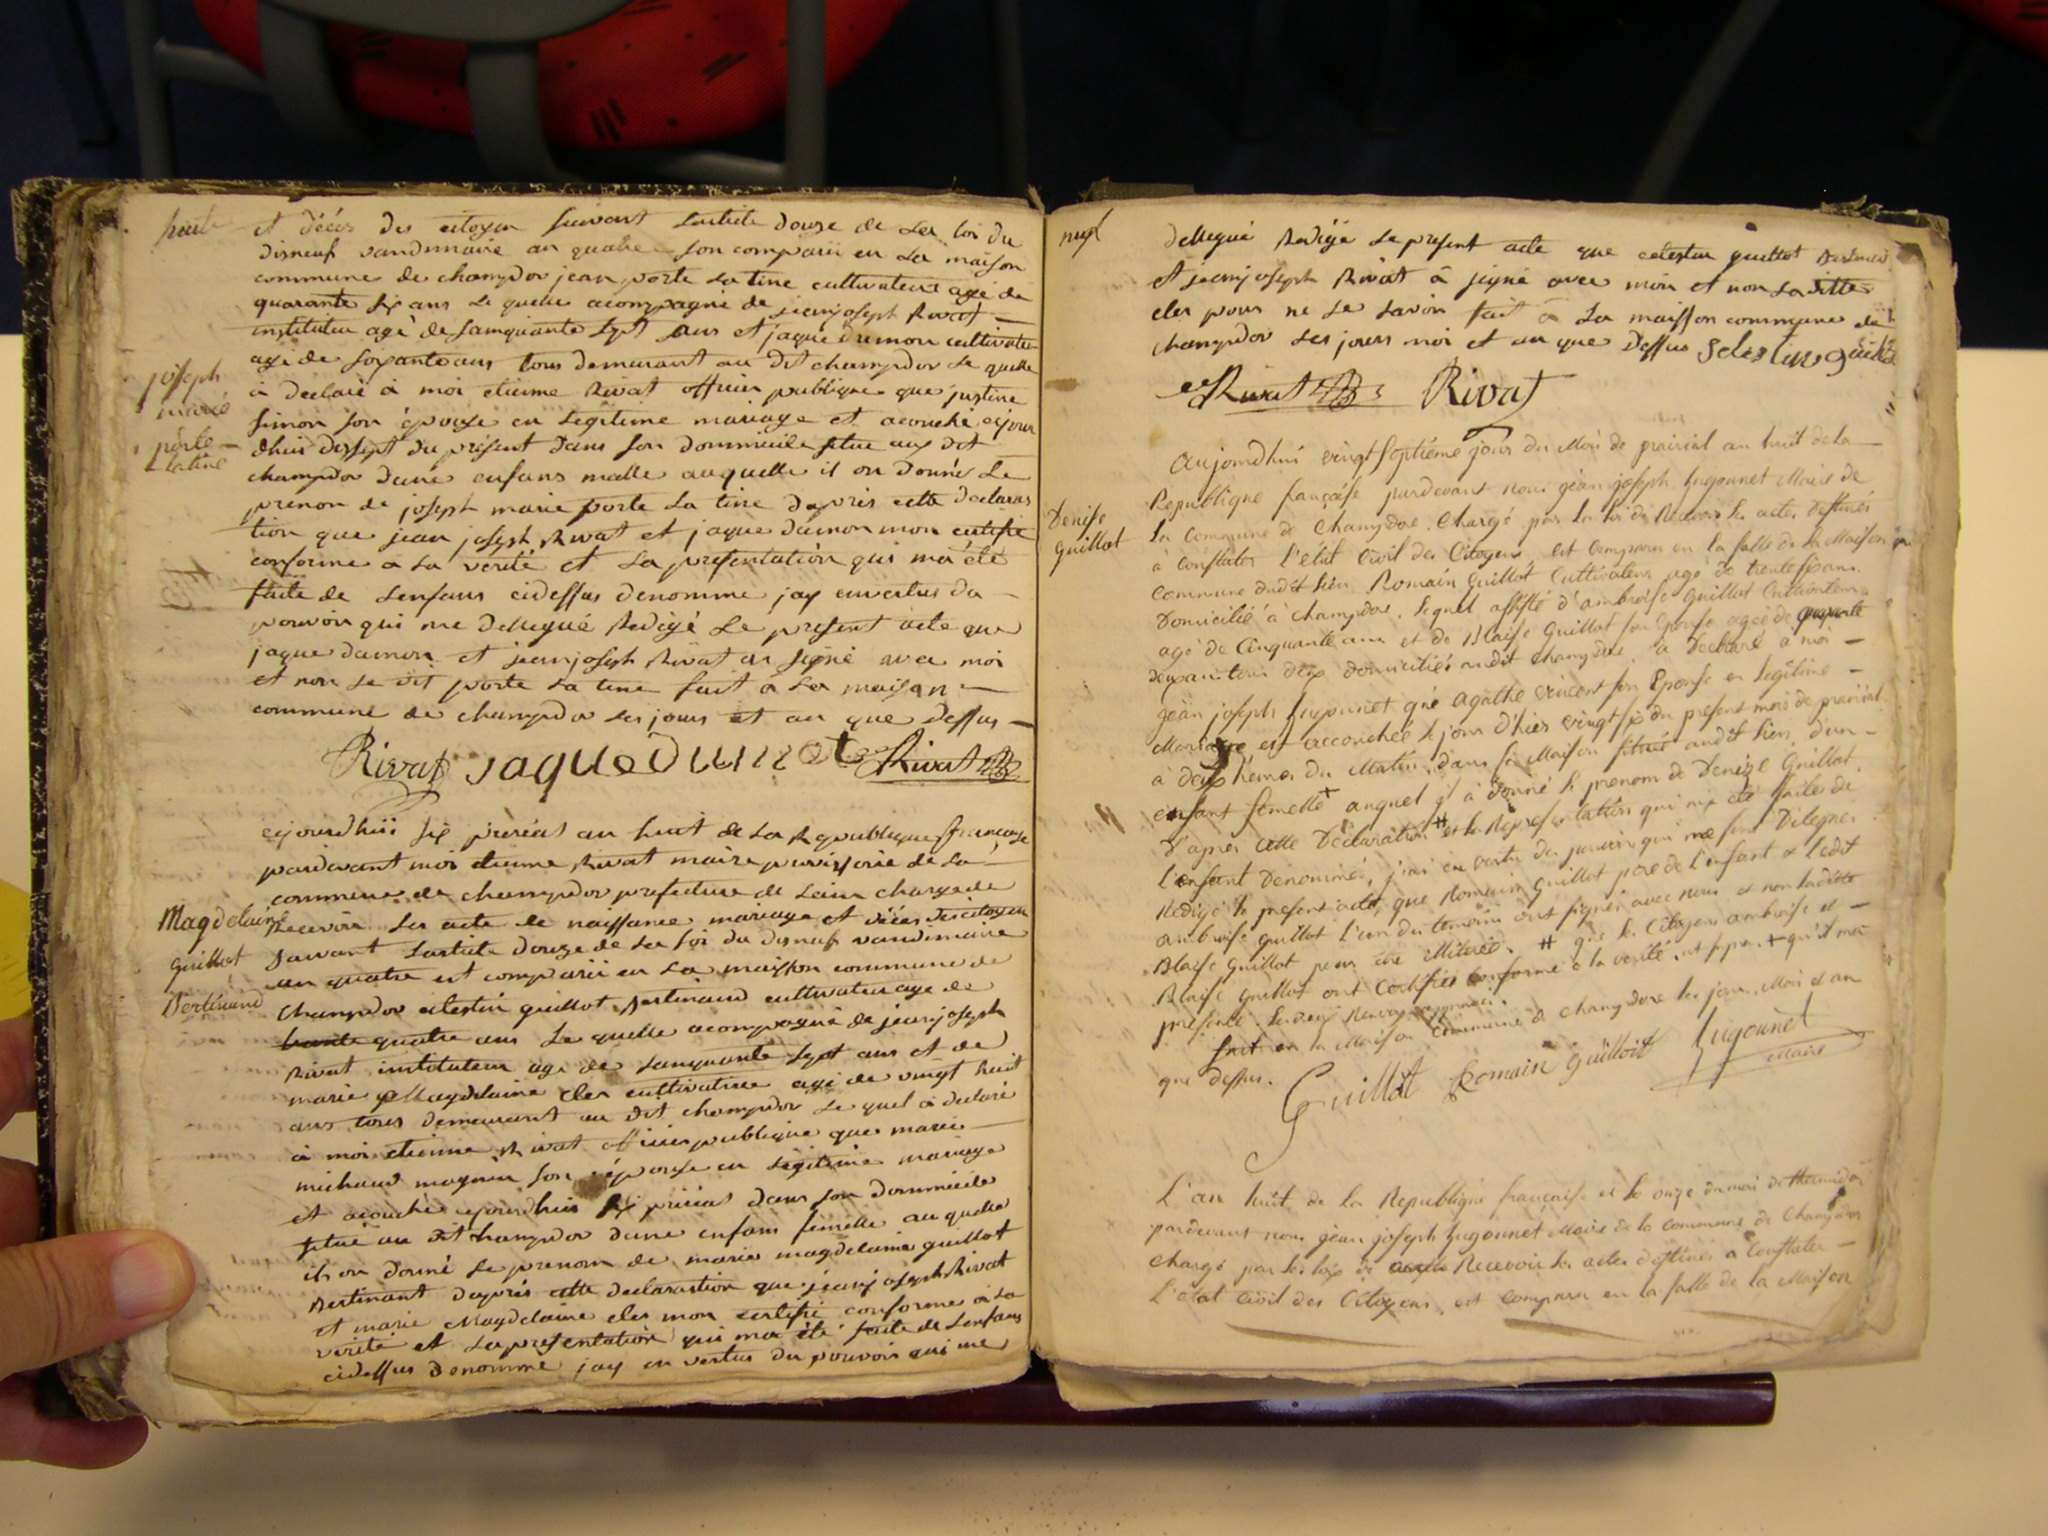 huit
et décés des citoyen suivant larticle douze de la loi du
disneuf vandimaire an quatre son comparü en la maison
commune de champdor jean porte la tine cultivateur agé de
quarante six ans le quelle acompagné de jeanjoseph Rivat
instituteur agé de sainquante sept ans et jaque dumon cultivateur
agé de soyante ans tous demeurant au dit champdor le quelle
à declaré à moi etienne Rivat officier publique que justine
simon son épouse en legitime mariage et acouché ejour
dhui dissept du présent dans son dommicile situe au dit
champdor dune enfans malle auquelle il on donné le
prenon de joseph marie porte la tine dapris cette declaras
tion que jean joseph Rivat et jaque dumon mon certifié
conforme a la verité et la presentation qui ma été
faite de lenfans cidessus denomme jay envertus du
pouvoir qui me dellegué Redigé le present acte que
jaque dumon et jeanjoseph Rivat on signé avec moi
et non le dit porte la tine fait à la maison
commune de champdor les jours et an que dessus
joseph
marie
porte
latine
Rivat jaque dumont Rivat
ejourdhüi six préréal an huit de la Republique francaise
pardevant moi etienne Rivat maire provissoire de la
commune de champdor prefecture de lain charge de
Recevoir les acte de naissance mariage et décés des citoyen
suivant larticle douze de la loi du disneuf vandimaire
an quatre est comparü en la maison commune de
champdor celestin guillot Bertinand cultivateur age de
trente quatre ans le quelle acompagné de jeanjoseph
Rivat instituteur age de sanquante sept ans et de
marie Magdelaine cler cultivatrice agé de vingt huit
ans tous demeurant au dit champdor le quel à declaré
à moi etienne Rivat officier publique que marie
michaud son épouse en légitime mariage
et acouché ejourdhui six préréal dans son dommicile
situe au dit champdor dune enfans femelle au quelle
ils on donné le prenom de marie magdelaine guillot
Bertinant dapris cette declarastion que jeanjoseph Rivat
et marie Magdelaine cler mon certifié conforme à la
verité et la presentation qui ma été faite de lenfans
cidessus denomme jay en vertus du pouvoir qui me
Magdelaine
guillot
Bertinand
neuf
dellegué Redigé le present acte que celestin guillot Bertinand
et jeanjoseph Rivat à signé avec moi et non la ditte
cler pour ne le savoir fait à la maisson commune de
champdor les jours moi et an que dessus selestin guillot
Rivat Rivat
Aujourdhui vingt septiéme jour du Mois de prairial an huit de la
Republique française pardevant nous jean joseph Jugonnet Maire de
la Commune de Champdor, chargé par la loi de Recevoir les actes destinés
à constater l'état Civil des Citoyens, est comparu en la salle de la Maison
Commune dudit lieu Romain Guillot Cultivateur agé de trente six ans
Domicilié à champdor, lequel assisté d'ambroise Guillot Cultivateur
agé de Cinquante ans et de Blaise Guillot son Epouse agée de quarante
deux ans tous deux domiciliés audit champdor, a Declaré à moi
jean joseph Jugonnet que agathe vincent son Epouse en légitime
Mariage est accouchée le jour D'hier vingt six du present mois de prairial
à deux heures du Matin, dans sa Maison située audit lieu, d'un
enfant femelle + auquel il à donné le prenom de Denize Guillot
D'aprés cette Déclaration # et la Représentation qui m'a été faites de
l'enfant denommée, j'ai en vertu des pouvoirs qui me sont Délegués
Redigé le present acte, que Romain Guillot pere de l'enfant & ledit
ambroise guillot l'un des temoins ont signés avec nous et non ladite
Blaise Guillot pour être illiterée. # que les Citoyens ambroise et
Blaise Guillot ont certifiés conforme à la vérité, + qu'il m'a
présenté. les deux Renvoys approuvés.
fait en la Maison Commune de champdor les jour, Mois et an
que dessus.
Denise
guillot
Guillot Romain Guilloit Jugonnet
Maire
L'an huit de la Republique française et le onze du mois de thermidor
pardevant nous jean joseph Jugonnet Maire de la commune de Champdor
chargé par les loix de Recevoir les actes destinés a Constater
L'état Civil des Citoyens, est comparu en la salle de la Maison